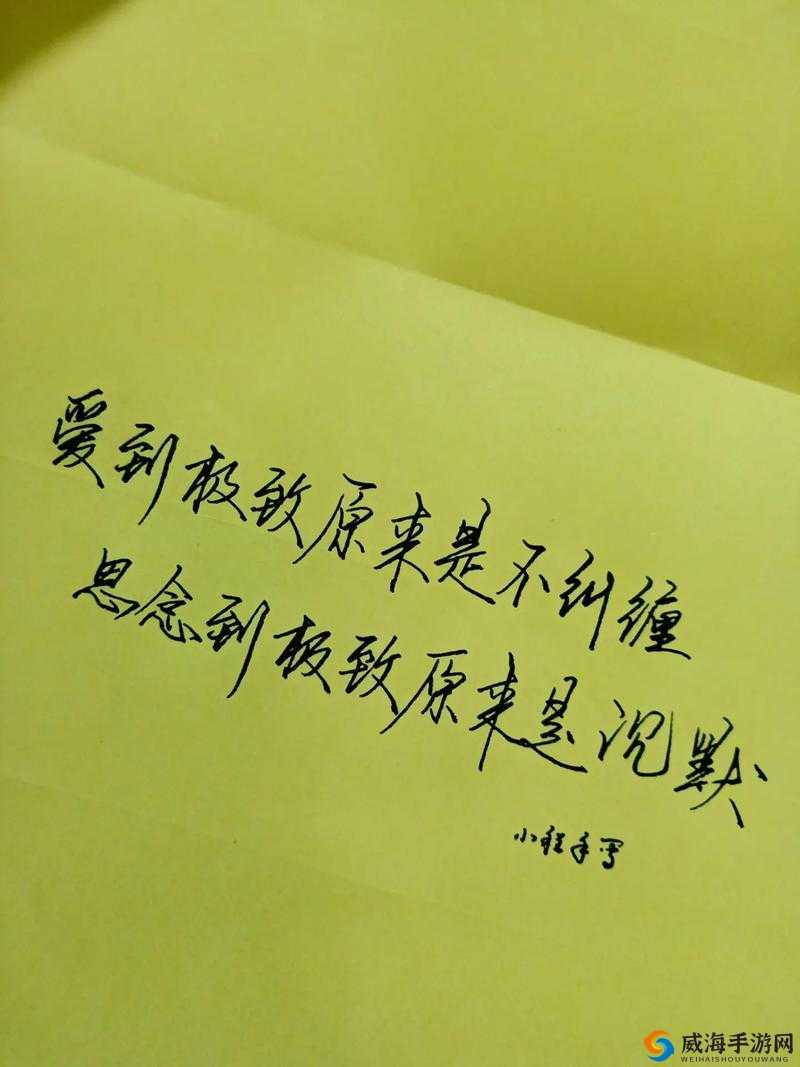 爱到极致原来是不纠缠
思念到极致原来是沉默
小程手写
威海手游网
WEIHAISHOUYOUWANG